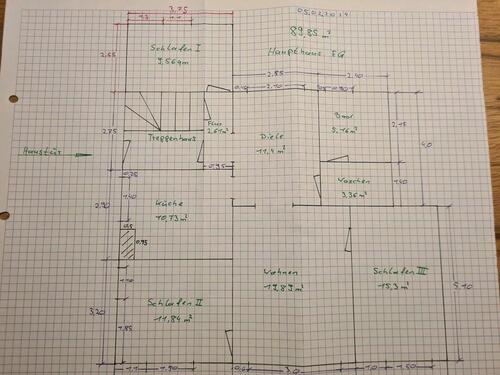 3,75
05.02.2014
1,3
1,1
89,85 m²
Haupthaus EG
Schlafen I
9,56qm
2,55
2,85
2,40
2,10
0,90
Flur
2,61m²
Bad
5,16 m²
2,15
4,0
Treppenhaus
2,85
Diele
11,4 m²
Haustür
0,95
Waschen
3,36 m²
1,40
0,75
1,40
Küche
10,73 m²
2,90
0,5
0,95
Wohnen
19,89 m²
Schlafen III
15,3 m²
5,10
1,10
Schlafen II
11,84 m²
3,20
1,85
1,1
1,90
0,6
3,0
1,0
1,50